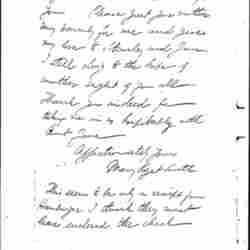 you. Please greet your mother
my   for me and give
my love to   and June
I still cling to the hope of
another sight of you all
Thank you indeed for
taking me in so hospitably with
Aunt Jane
Affectionately yours
Mary
This seems to be only a receipt from
I think they must
have enclosed the check